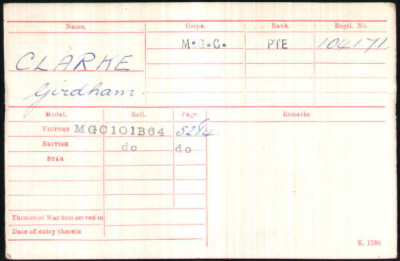 Name. Corps. Rank. Regtl. No.
CLARKE M.G.C. PTE 104171.
Girdham.
Medal. Roll. Page. Remarks.
VICTORY MGC101B64 5284.
BRITISH do do
STAR
Theatre of War first served in
Date of entry therein
K. 1380